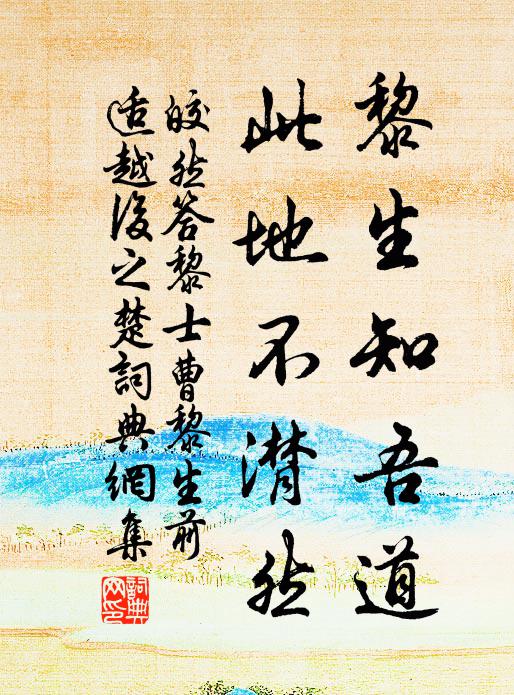 黎生知吾道
此地不潸然
皎然答黎士曹黎生前
适越後之楚詞典網集
詞典网印